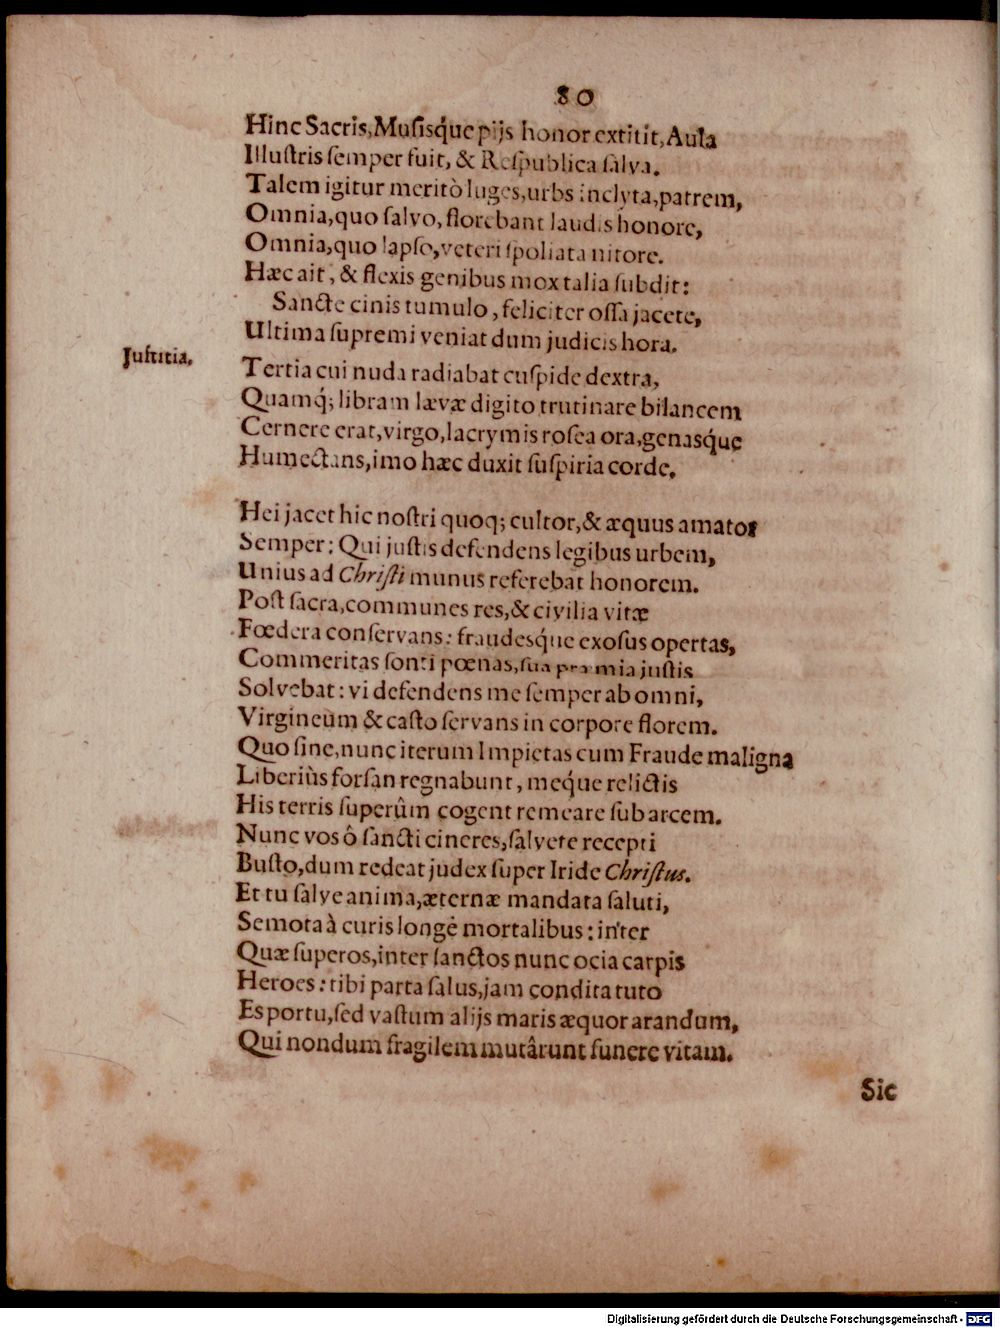 80
Hinc Sacris, Musisq́ue pijs honor extitit, Aula
Illuſtris ſemper fuit, & Reſpublica ſalva.
Talem igitur meritò luges, urbs inclyta, patrem,
Omnia, quo ſalvo, florebant laudis honore,
Omnia, quo lapſo, veteri ſpoliata nitore.
Hæc ait, & flexis genibus mox talia ſubdit:
Sancte cinis tumulo, feliciter oſſa jacete,
Ultima ſupremi veniat dum judicis hora.
Juſtitia.
Tertia cui nuda radiabat cuſpide dextra,
Quamq́; libram lævæ digito trutinare bilancem
Cernere erat, virgo, lacrymis roſea ora, genasq́ue
Humectans, imo hæc duxit ſuſpiria corde.
Hei jacet hic noſtri quoq; cultor, & æquus amator
Semper: Qui juſtis defendens legibus urbem,
Unius ad Chriſti munus referebat honorem.
Poſt ſacra, communes res, & civilia vitæ
Fœdera conſervans: fraudesq́ue exoſus opertas,
Commeritas ſonti pœnas, ſua præmia juſtis
Solvebat: vi defendens me ſemper ab omni,
Virgineum & caſto ſervans in corpore florem.
Quo ſine, nunc iterum Impietas cum Fraude maligna
Liberiùs forſan regnabunt, meq́ue relictis
His terris ſuperûm cogent remeare ſub arcem.
Nunc vos ô ſancti cineres, ſalvete recepti
Buſto, dum redeat judex ſuper Iride Chriſtus.
Et tu ſalve anima, æternæ mandata ſaluti,
Semota à curis longè mortalibus: inter
Quæ ſuperos, inter ſanctos nunc ocia carpis
Heroes: tibi parta ſalus, jam condita tuto
Es portu, ſed vaſtum alijs maris æquor arandum,
Qui nondum fragilem mutârunt funere vitam.
Sic
Digitalisierung gefördert durch die Deutsche Forschungsgemeinschaft - DFG